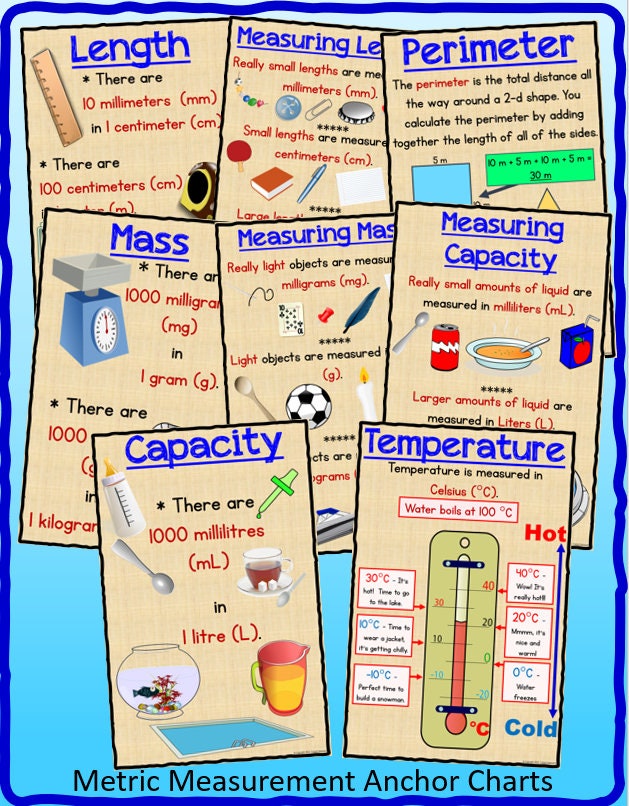 Length
* There are
10 millimeters (mm)
in 1 centimeter (cm)
* There are
100 centimeters (cm)
(m).
Measuring Le
Really small lengths are me
millimeters (mm).
*****
Small lengths are measure
centimeters (cm).
*****
Large
Perimeter
The perimeter is the total distance all
the way around a 2-d shape. You
calculate the perimeter by adding
together the length of all of the sides.
5 m
10 m + 5 m + 10 m + 5 m =
30 m
Mass
* There are
1000 milligram
(mg)
in
1 gram (g).
* There are
1000
in
1 kilogram
Measuring Mas
Really light objects are measur
milligrams (mg).
*****
Light objects are measured
(g).
*****
objects are
(kg)
Measuring
Capacity
Really small amounts of liquid are
measured in milliliters (mL).
*****
Larger amounts of liquid are
measured in Liters (L).
Capacity
* There are
1000 millilitres
(mL)
in
1 litre (L).
Temperature
Temperature is measured in
Celsius (°C).
Water boils at 100 °C
Hot
30°C - It's
hot! Time to go
to the lake.
10°C - Time to
wear a jacket,
it's getting chilly.
-10°C -
Perfect time to
build a snowman.
40
30
20
10
0
-10
-20
°C
40°C -
Wow! It's
really hot!!!
20°C -
Mmmm, it's
nice and
warm!
0°C -
Water
freezes
Cold
Metric Measurement Anchor Charts